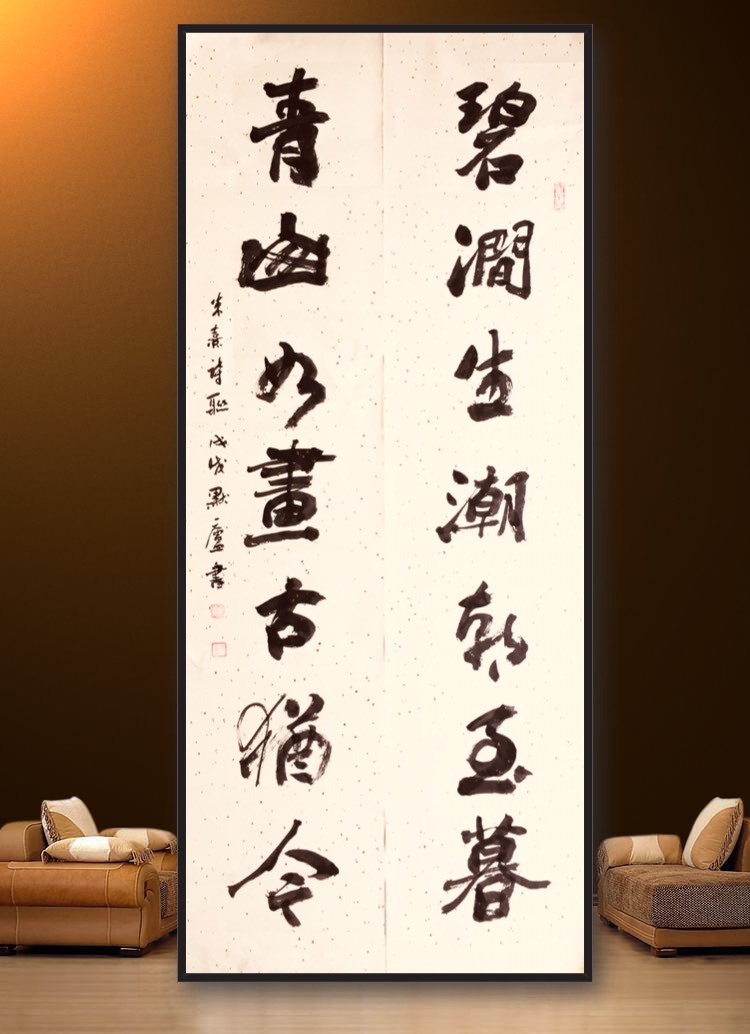 碧澗生潮朝至暮
青山如畫古猶今
朱熹詩聯 戊戌 默廬書